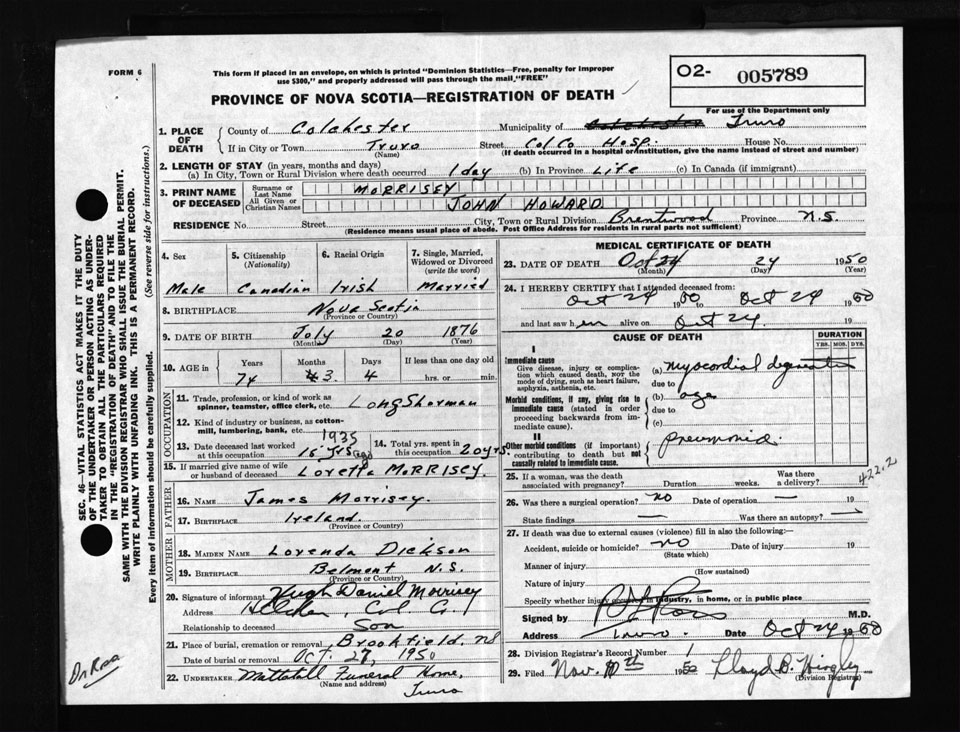 FORM 6
This form if placed in an envelope, on which is printed "Dominion Statistics—Free, penalty for improper
use $300," and properly addressed will pass through the mail "FREE"
O2- 005789
For use of the Department only
PROVINCE OF NOVA SCOTIA—REGISTRATION OF DEATH
1. PLACE OF DEATH
County of Colchester Municipality of Colchester Truro
If in City or Town Truro Street Col Co Hosp. House No.
(Name) (If death occurred in a hospital or institution, give the name instead of street and number)
2. LENGTH OF STAY (in years, months and days)
(a) In City, Town or Rural Division where death occurred 1 day (b) In Province Life (c) In Canada (if immigrant)
3. PRINT NAME OF DECEASED
Surname or Last Name MORRISEY
All Given or Christian Names JOHN HOWARD
RESIDENCE No. Street City, Town or Rural Division Brentwood Province N.S.
(Residence means usual place of abode. Post Office Address for residents in rural parts not sufficient)
4. Sex 5. Citizenship (Nationality) 6. Racial Origin 7. Single, Married, Widowed or Divorced (write the word)
Male Canadian Irish Married
8. BIRTHPLACE Nova Scotia
(Province or Country)
9. DATE OF BIRTH July 20 1876
(Month) (Day) (Year)
10. AGE in Years Months Days If less than one day old
74 3 4 hrs. or min.
OCCUPATION
11. Trade, profession, or kind of work as
spinner, teamster, office clerk, etc. LongShorman
12. Kind of industry or business, as cotton-
mill, lumbering, bank, etc.
13. Date deceased last worked at this occupation 1935 15 yrs ago
14. Total yrs. spent in this occupation 20 yrs.
15. If married give name of wife
or husband of deceased Loretta MORRISEY
FATHER
16. NAME James Morrisey.
17. BIRTHPLACE Ireland.
(Province or Country)
MOTHER
18. MAIDEN NAME Lorenda Dickson
19. BIRTHPLACE Belmont N.S.
(Province or Country)
20. Signature of informant Hugh Daniel Morrisey
Address Col Co.
Relationship to deceased Son
21. Place of burial, cremation or removal Brookfield. NS
Date of burial or removal OCT. 27, 1950
22. UNDERTAKER Mattatall Funeral Home,
(Name and address) Truro
MEDICAL CERTIFICATE OF DEATH
23. DATE OF DEATH Oct 24 24 1950
(Month) (Day) (Year)
24. I HEREBY CERTIFY that I attended deceased from:
Oct 24 1950 to Oct 24 1950
and last saw h alive on Oct 24. 19
CAUSE OF DEATH
DURATION
YRS. MOS. DYS.
I
Immediate cause
Give disease, injury or complica-
tion which caused death, not the
mode of dying, such as heart failure,
asphyxia, asthenia, etc.
(a) myocordial
due to
Morbid conditions, if any, giving rise to
immediate cause (stated in order
proceeding backwards from im-
mediate cause).
(b) age
due to
(c)
II
Other morbid conditions (if important)
contributing to death but not
causally related to immediate cause.
pneumonia.
25. If a woman, was the death
associated with pregnancy? Duration weeks. Was there a delivery?
422.2
26. Was there a surgical operation? no Date of operation — 19
State findings — Was there an autopsy? —
27. If death was due to external causes (violence) fill in also the following:—
Accident, suicide or homicide? no Date of injury 19
(State which)
Manner of injury
(How sustained)
Nature of injury
Specify whether injury occurred in industry, in home, or in public place
Signed by Ross M.D.
Address Truro. Date Oct 24 1950
28. Division Registrar's Record Number 1
29. Filed Nov. 10th 1950 Lloyd B. Hingley
(Division Registrar)
SEC. 46—VITAL STATISTICS ACT MAKES IT THE DUTY
OF THE UNDERTAKER OR PERSON ACTING AS UNDER-
TAKER TO OBTAIN ALL THE PARTICULARS REQUIRED
IN THE "REGISTRATION OF DEATH" AND TO FILE THE
SAME WITH THE DIVISION REGISTRAR WHO SHALL ISSUE THE BURIAL PERMIT.
WRITE PLAINLY WITH UNFADING INK. THIS IS A PERMANENT RECORD.
Every item of information should be carefully supplied. (See reverse side for instructions.)
Dr Ross